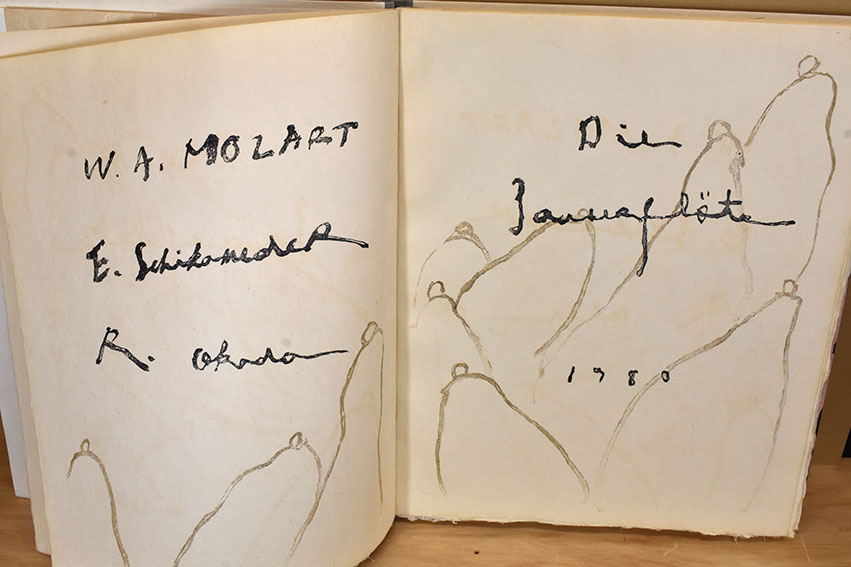 W. A. MOZART
E. Schikaneder
R. Okada
Die
Zauberflöte
1980